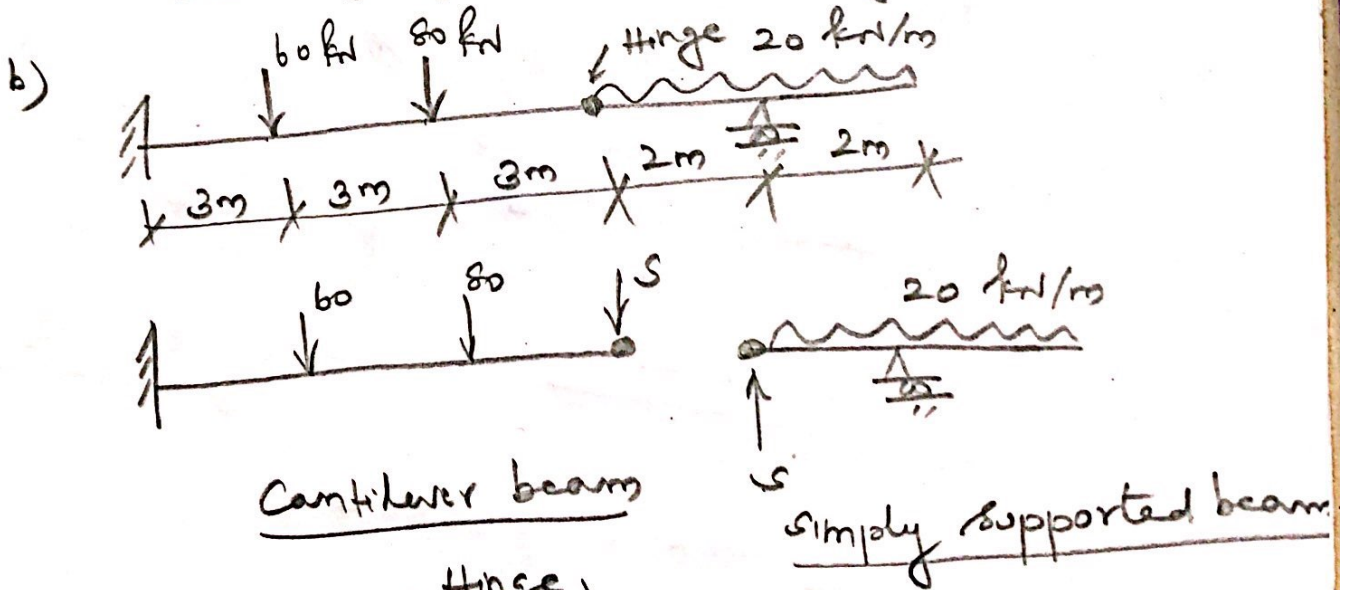 b)
60 kN 80 kN Hinge 20 kN/m
3m 3m 3m 2m 2m
60 80 S 20 kN/m
S
Cantilever beam
Simply supported beam
Hinge